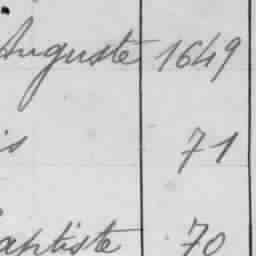 Auguste 1649
is 71
aptiste 70